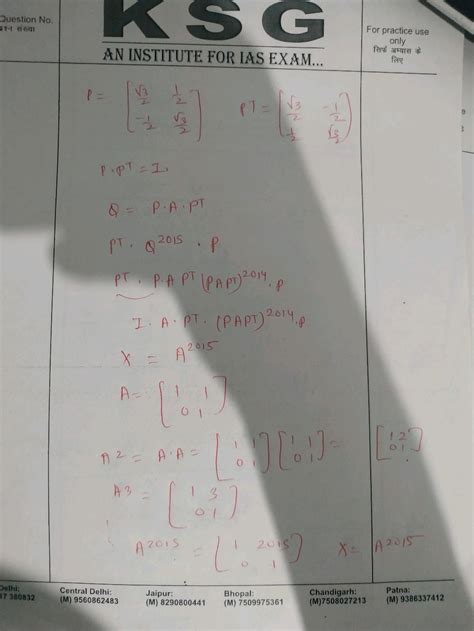 Question No.
प्रश्न संख्या
KSG
AN INSTITUTE FOR IAS EXAM...
For practice use
only
सिर्फ अभ्यास के
लिए
P = [√3/2 1/2
-1/2 √3/2]
PT = [√3/2 -1/2
1/2 √3/2]
P·PT = I.
Q = P·A·PT
PT · Q^2015 · P
PT · P·A PT (PAPT)^2014 · P
I · A · PT · (PAPT)^2014 · P
X = A^2015
A = [1 1
0 1]
A2 = A·A = [1 1
0 1] [1 1
0 1] = [1 2
0 1]
A3 = [1 3
0 1]
A^2015 = [1 2015
0 1] X = A^2015
Delhi:
Central Delhi:
(M) 9560862483
Jaipur:
(M) 8290800441
Bhopal:
(M) 7509975361
Chandigarh:
(M)7508027213
Patna:
(M) 9386337412